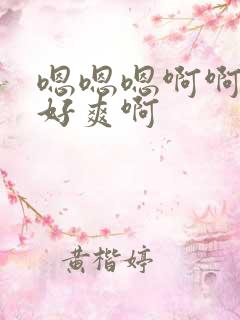 嗯嗯嗯啊啊
好爽啊
黄楷婷